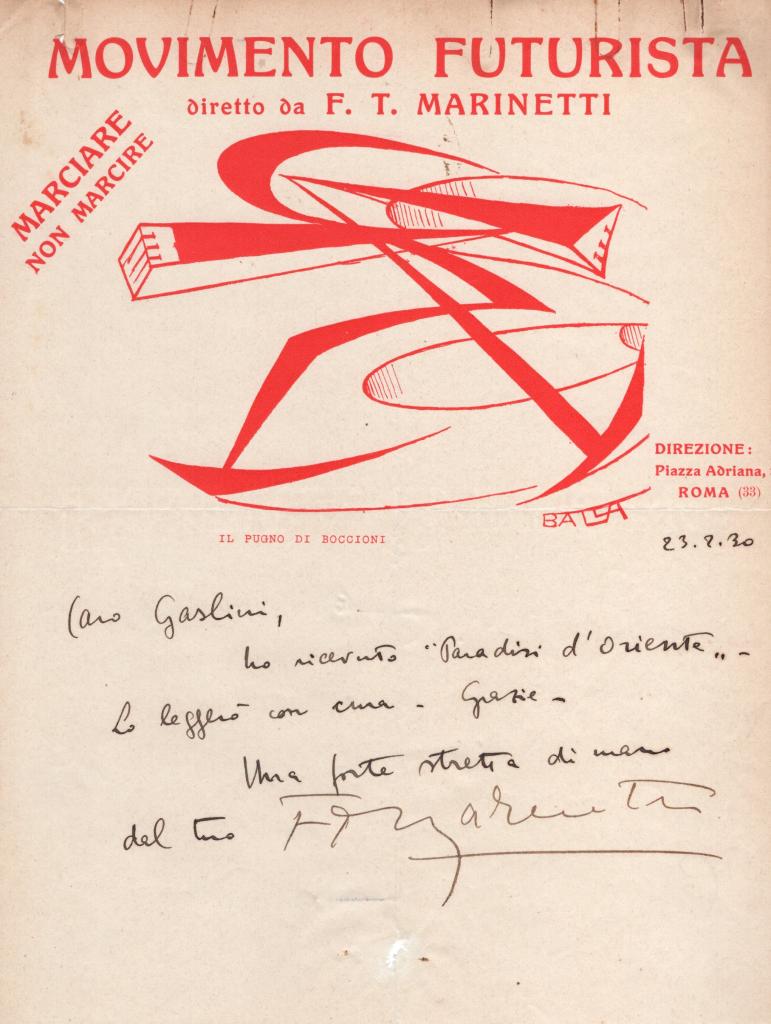 MOVIMENTO FUTURISTA
diretto da F. T. MARINETTI
MARCIARE
NON MARCIRE
DIREZIONE:
Piazza Adriana,
ROMA (33)
BALLA
IL PUGNO DI BOCCIONI
23.2.30
Caro Gaslini,
ho ricevuto "Paradisi d'Oriente„ -
Lo leggerò con cura - Grazie -
Una forte stretta di mano
dal tuo FT Marinetti